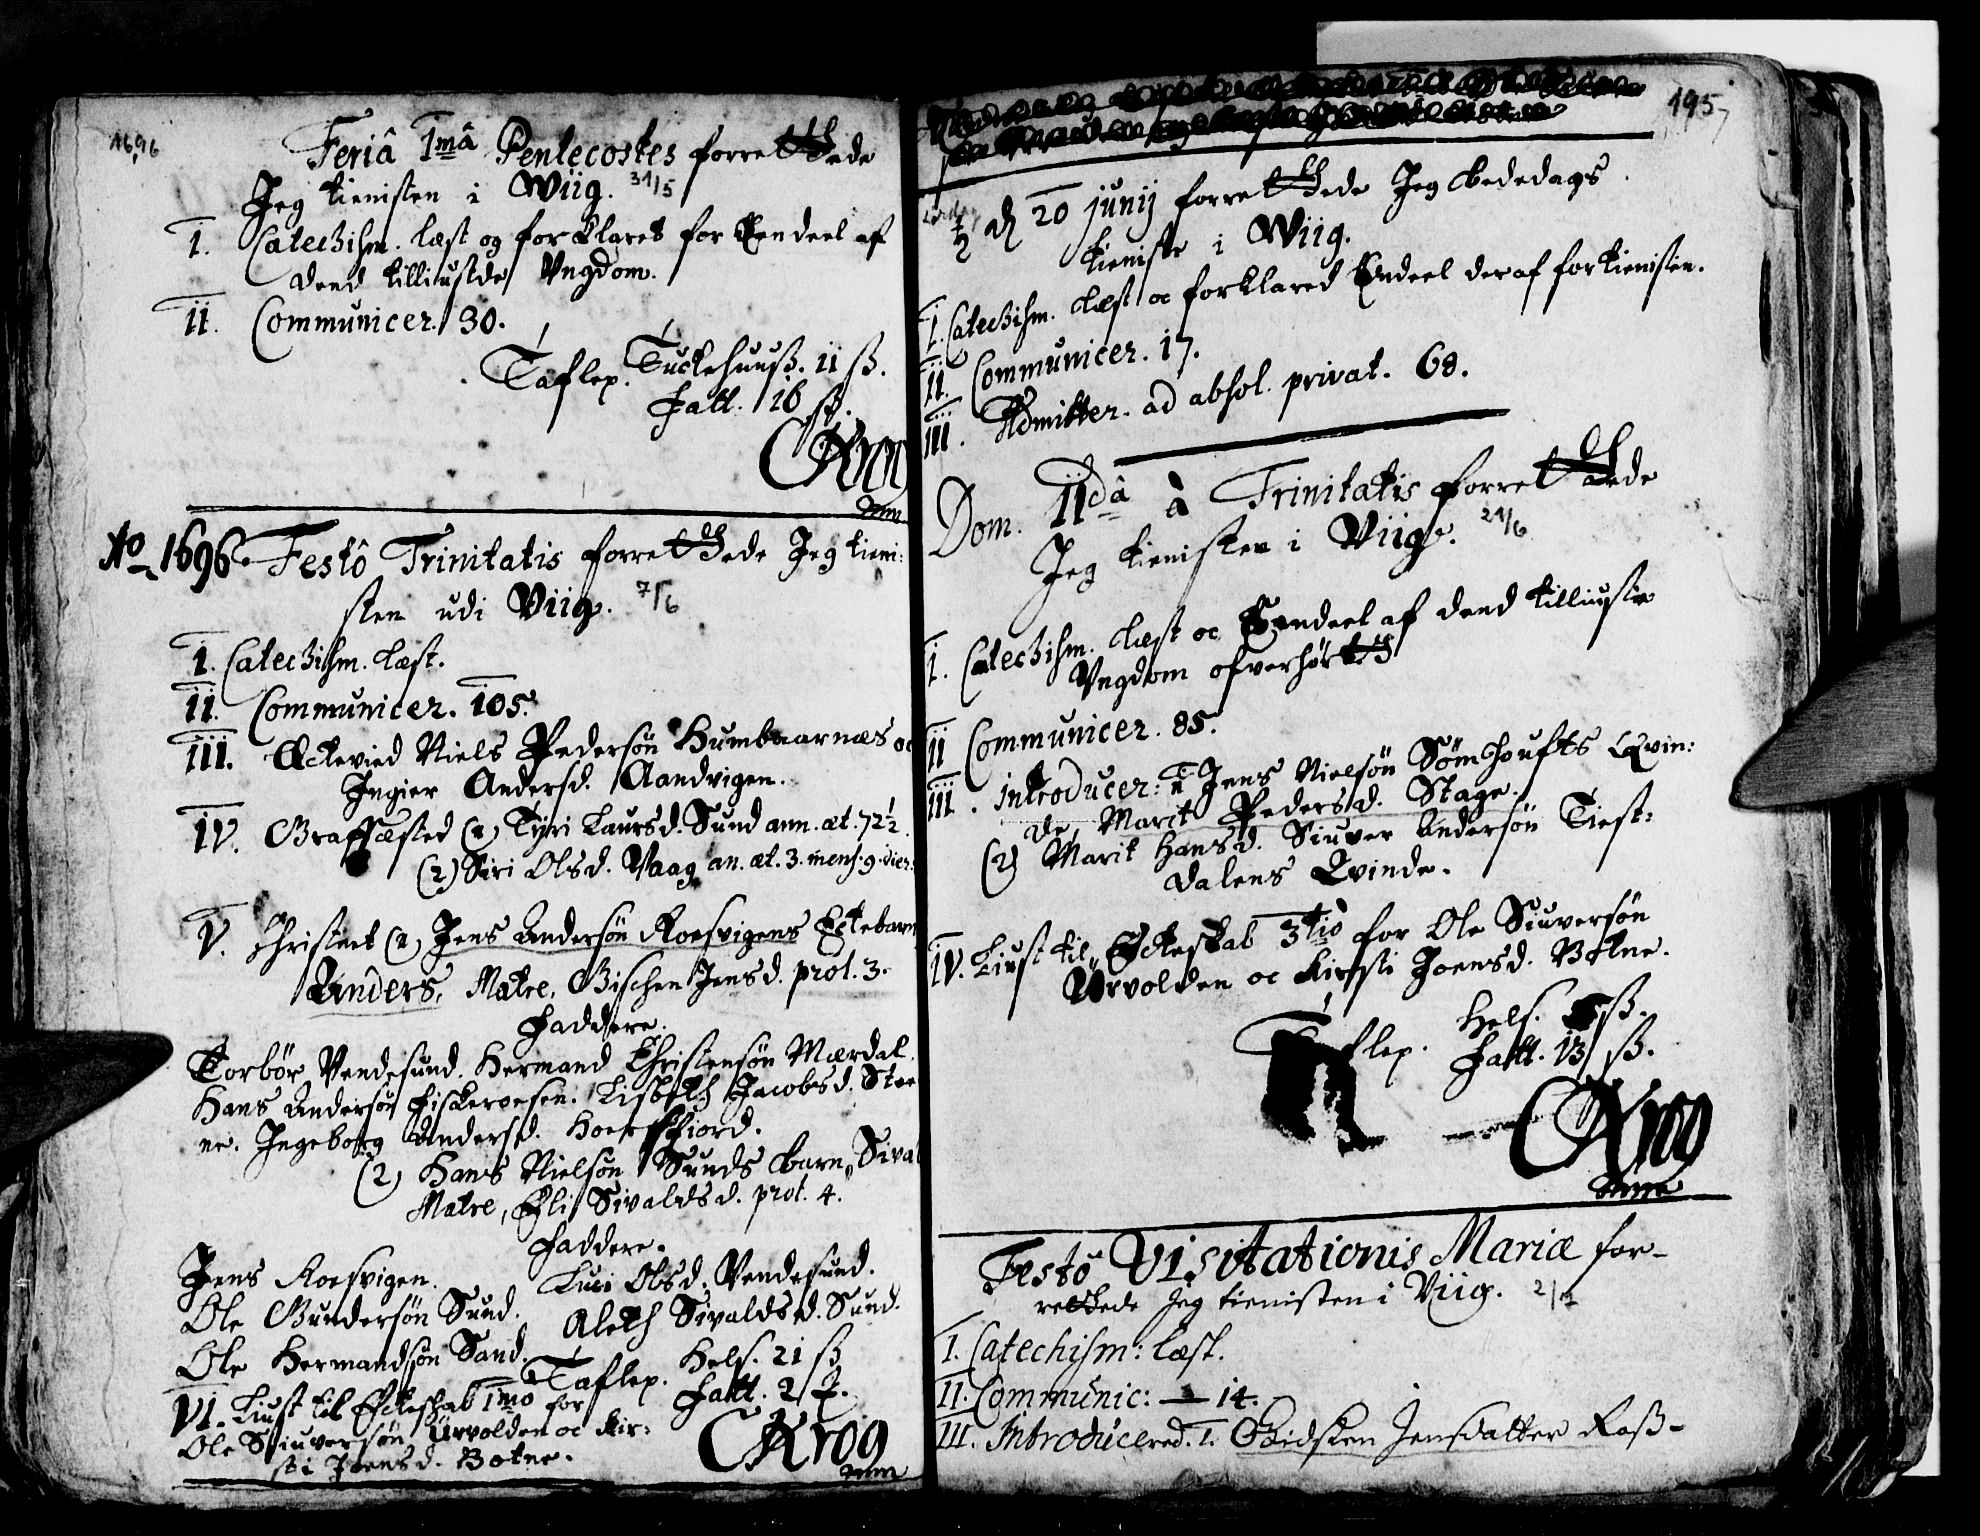 1696
Feriâ 1mâ Pentecostes forrettede
Jeg tienisten i Wiig. 31/5
I. Catechism. læst og forklaret for Eendeel af
dend tilliustde Vngdom.
II. Communicer. 30.
Taflep. Tuckthuuß. 11 ß.
Fatt. 16 ß.
CKrog
mm
Ao 1696. Festô Trinitatis forrettede Jeg tieni:
sten udi Viig. 7/6
I. Catechism. læst.
II. Communicer. 105.
III. Ectevied Niels Pedersøn Humbaarnæs oc
Ingier Andersd. Aandvigen.
IV. Graffæsted (1) Tÿri Laursd. Sund ann. æt. 72½.
(2) Siri Olsd. Vaag an. æt. 3. mens. 9. dier.
V. Christnet (1) Jens Andersøn Roesvigens Ectebarn
Anders, Matre, Gischen Jensd. prot. 3.
Faddere.
Torbör Vendesund. Hermand Christensøn Mærdal.
Hans Andersøn Fiskeroesen. Lisbeth Jacobsd. Stee
ne. Ingeborg Andersd. Hoersfiord.
(2) Hans Nielsøn Sunds barn, Sival
Matre, Eli Sivaldsd. prot. 4.
Faddere.
Jens Roesvigen. Luci Olsd. Vendesund.
Ole Gundersøn Sund. Aleth Sivaldsd. Sund.
Ole Hermandsøn Sand. Taflep. Hels. 21 ß
Fatt. 2
VI. Liust til Ecteskab 1mo for
Ole Siuversøn Urvolden oc Kir:
sti Joensd. Botne.
CKrog
mm
195
Lørdag
♄ d 20 junij forrettede Jeg Bededags
tieniste i Wiig.
I. Catechism. læst oc forklared Eendeel deraf for tienisten.
II. Communicer. 17.
III. Admitter. ad absol. privat. 68.
Dom. IIdâ à Trinitatis forrettede
Jeg tienisten i Viig. 21/6
I. Catechism. læst oc Eendeel af dend tilliuste
Vngdom ofverhørt
II Communicer. 85.
III. introducer: 1 Jens Nielsøn Sømhoufts Qvin:
de, Marit Pedersd. Stage.
(2) Marit Hansd. Siuver Andersøn Tiest:
dalens Qvinde.
IV. Liust til Ecteskab 3tiò for Ole Siuversøn
Urvolden oc Kirsti Joensd. Botne.
Taflep. Hels. ß.
Fatt. 13 ß.
CKrog
mm
Festô Visitationis Mariæ for-
rettede Jeg tienisten i Viig. 2/7
I. Catechism: læst.
II. Communic: — 14.
III. Introducered. 1. Gidsken Jensdatter Roß-